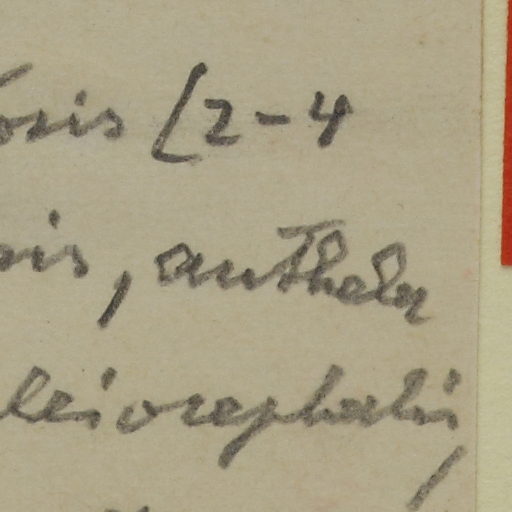 osis (2-4
is, anthela
leiocephalis,